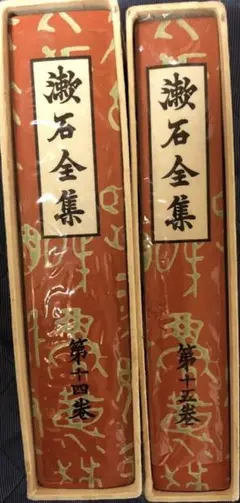 漱石全集
第十四巻
漱石全集
第十五巻